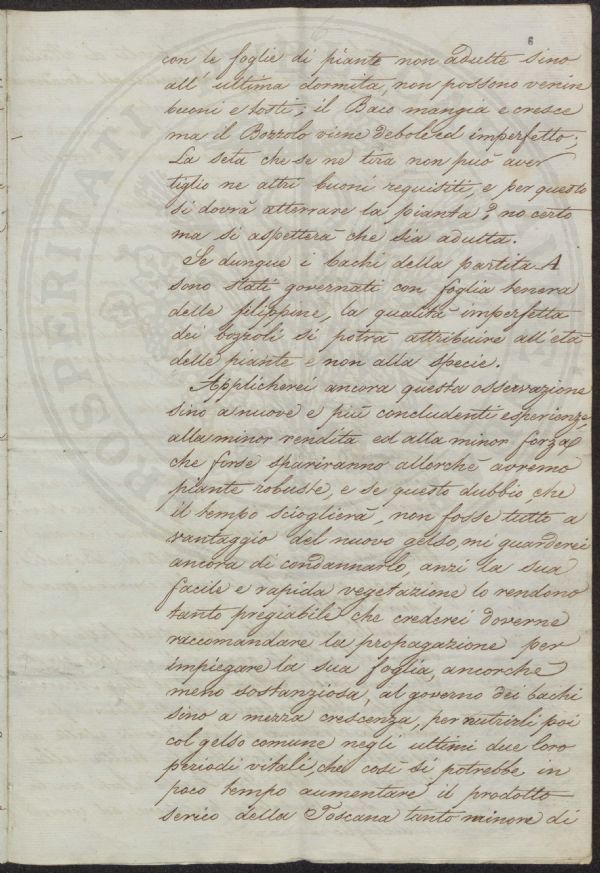 6
con le foglie di piante non adulte sino
all' ultima dormita, non possono venir
buoni e tosti; il Baco mangia e cresce
ma il Bozzolo viene debole ed imperfetto;
La seta che se ne tira non può aver
tiglio ne altri buoni requisiti, e per questo
si dovrà atterrare la pianta? no certo
ma si aspetterà che sia adulta.
Se dunque i bachi della partita A
sono stati governati con foglia tenera
delle filippine, la qualità imperfetta
dei bozzoli si potrà attribuire all'età
delle piante e non alla specie.
Applicherei ancora questa osservazione
sino a nuove e più concludenti esperienze,
alla minor rendita ed alla minor forza
che forse spariranno allorché avremo
piante robuste, e se questo dubbio, che
il tempo scioglierà, non fosse tutto a
vantaggio del nuovo gelso, mi guarderei
ancora di condannarlo, anzi la sua
facile e rapida vegetazione lo rendono
tanto pregiabile che crederei doverne
raccomandare la propagazione per
impiegare la sua foglia, ancorché
meno sostanziosa, al governo dei bachi
sino a mezza crescenza, per nutrirli poi
col gelso comune negli ultimi due loro
periodi vitali, che così si potrebbe in
poco tempo aumentare il prodotto
serico della Toscana tanto minore di
PROSPERITATI